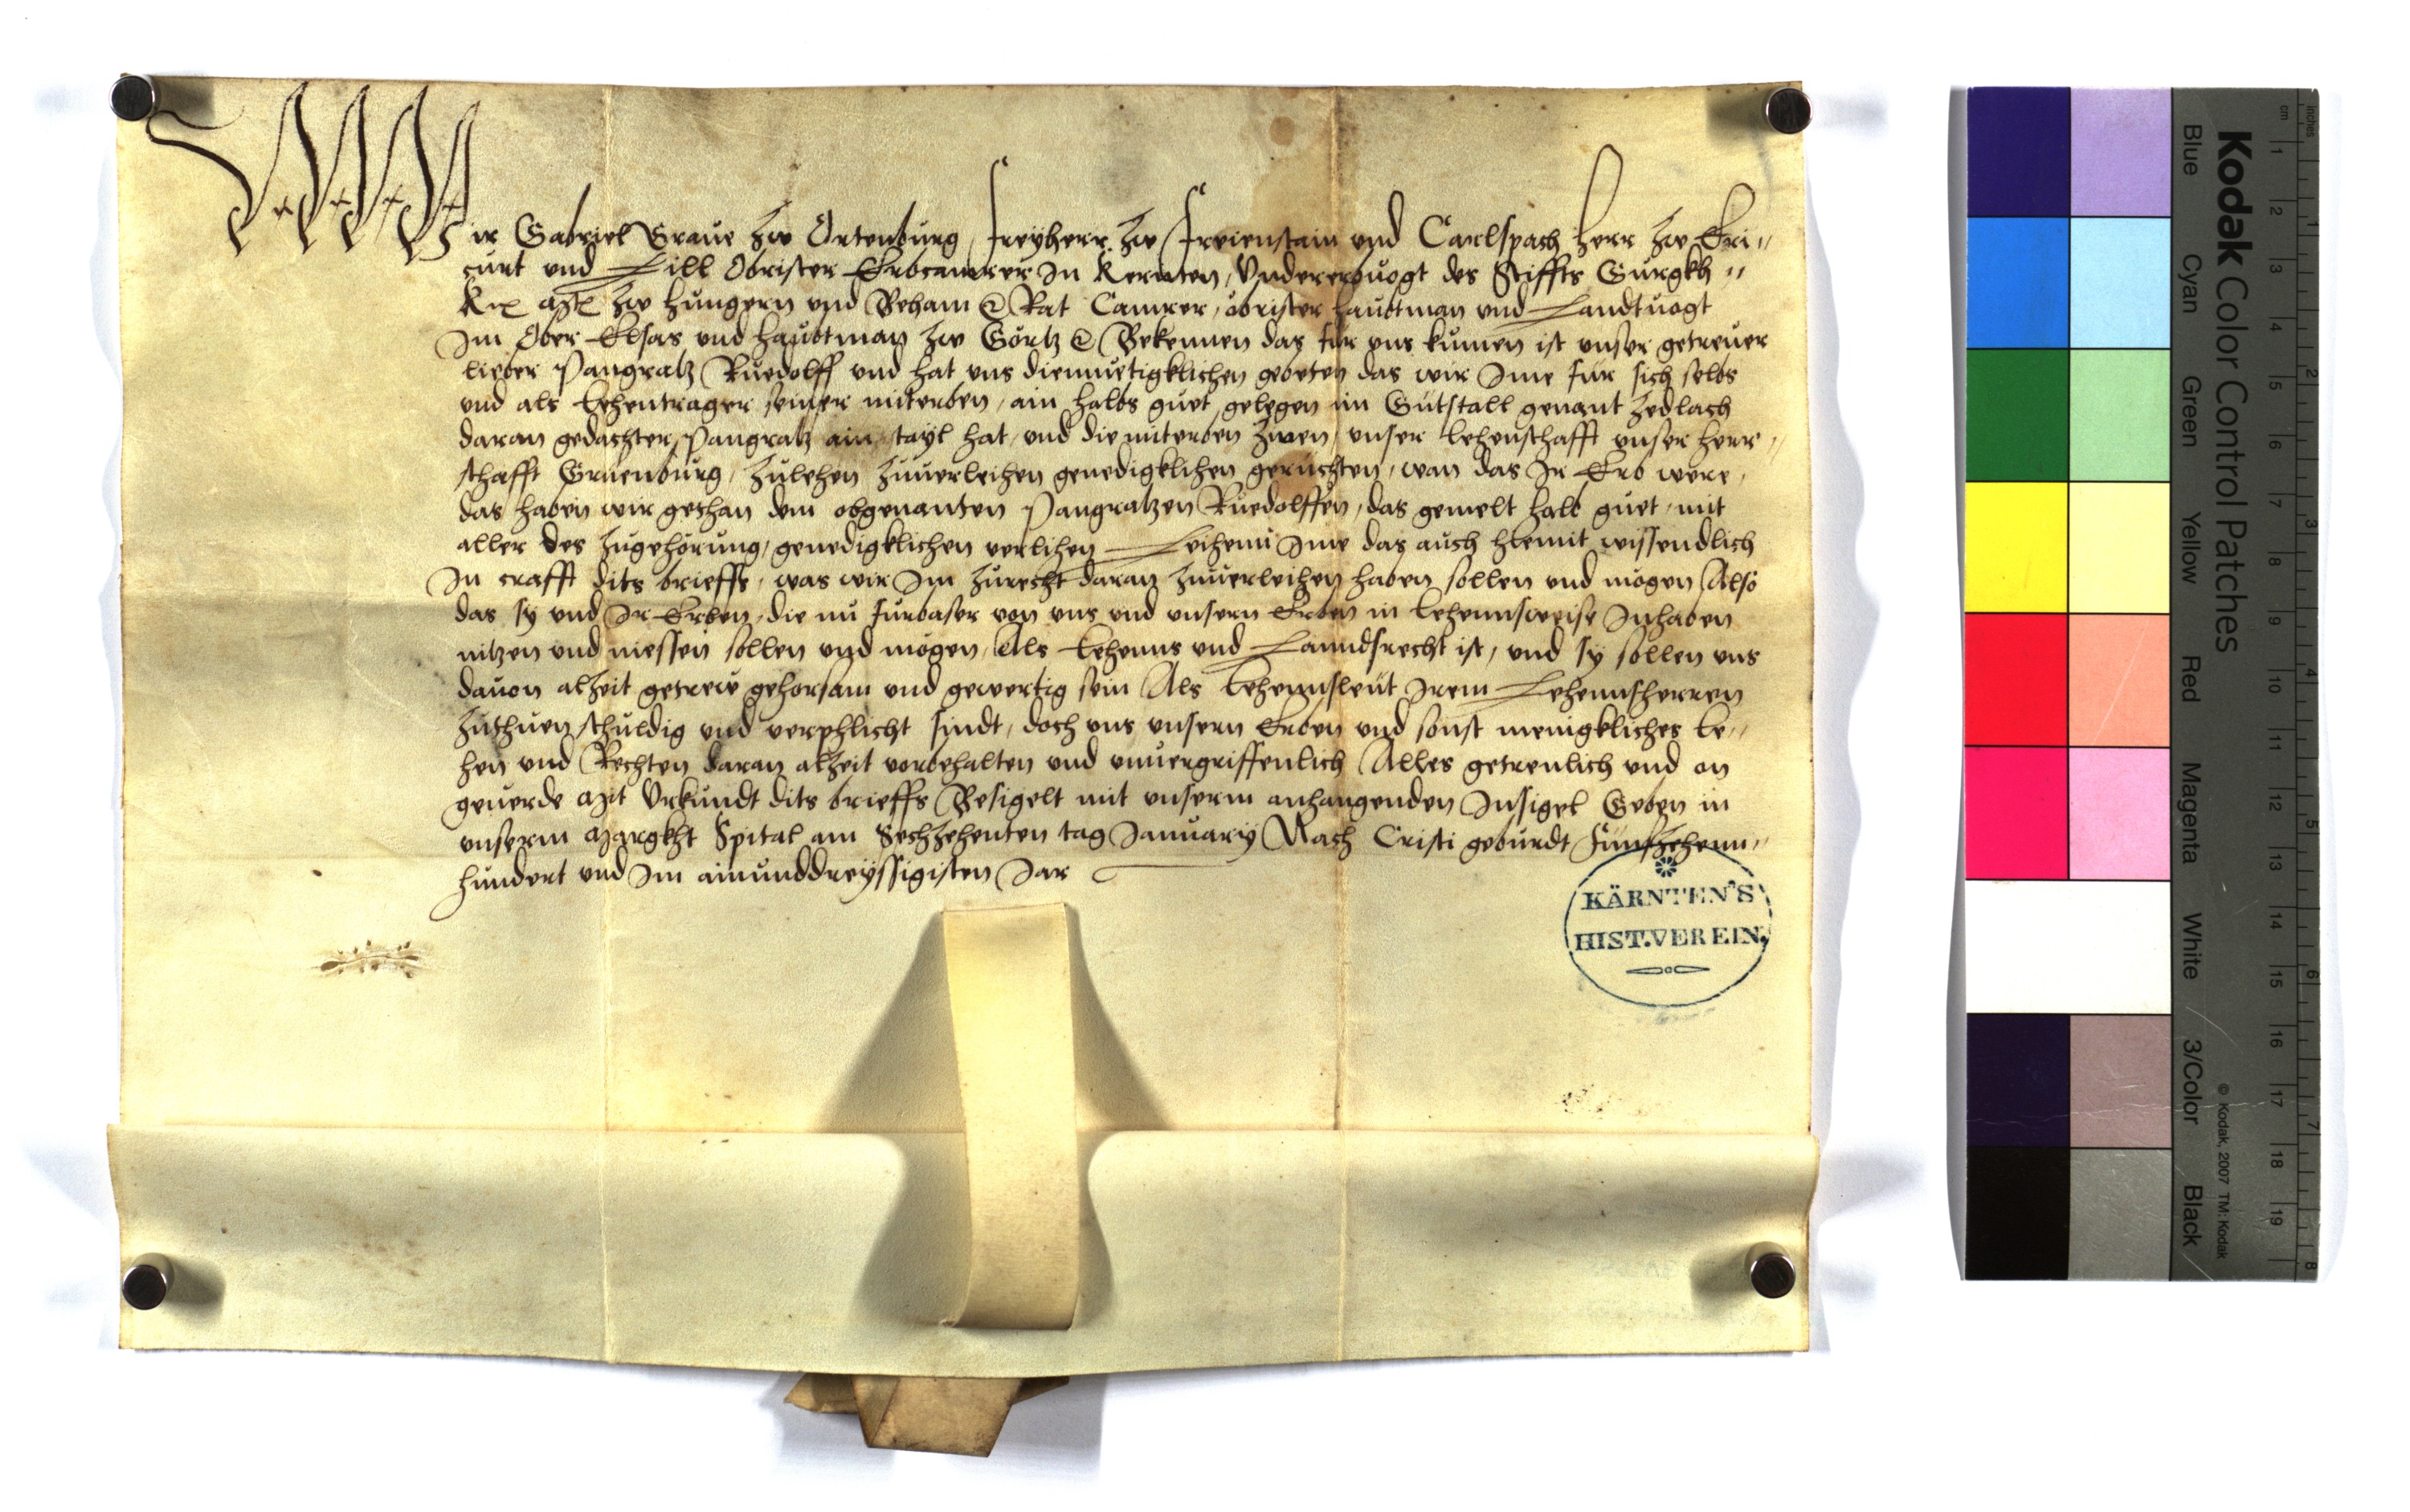 Wir Gabriel Graue zw Ortenburg, freyherr zw Freienstain und Carlspach Herr zw Eri„
curt und Lill Obrister Erbcamrer In Kernten, Undererbuogt des Stiffts Gurgkh „
Ku͠ Mt͠ zw Hungern und Beham &c Rat Camrer, obrister haubtman und Landtuogt
Im Ober Elsas und haubtman zw Görtz &c Bekennen das für uns kumen ist unser getreuer
lieber Pangratz Ruedolff und hat uns diemuetigklichen gebeten das wir Ime für sich selbs
und als lehentrager seiner miterben, ain halbs guet, gelegen im Gütstall genant Zedlach
daran gedachter Pangratz ain tayl hat, und die miterben zwen, unser lehenschafft unser herr„
schafft Gruenburg, zulehen zuuerleihen genedigklihen geruchten, wan das Ir Erb were,
das haben wir gethan dem obgenanten Pangratzen Ruedolffen, das gemelt halb guet, mit
aller des zugehörung, genedigklichen verlihen Leihenn Ime das auch hiemit wissendlich
In crafft dits brieffs, was wir Im zurecht daran zuuerleihen haben sollen und mögen Also
das sy und Ir Erben, die nu furbaser von uns und unsern Erben in lehennsweise Inhaben
nutzen und niessen sollen und mogen, Als lehenns und Lanndsrecht ist, und sy sollen uns
dauon alzeit getrew gehorsam und gewertig sein Als lehennsleut Irem Lehennsherren
zuthuen schuldig und verphlicht sindt, doch uns unsern Erben und sonst menigkliches le„
hen und Rechten daran alzeit vorbehalten und unuergriffenlich Alles getreulich und on
geuerde Mit Urkundt dits brieffs Besigelt mit unserm anhangenden Insigel Geben in
unserm Margkht Spital am Sechzehenten tag January Nach Cristi geburdt Funfzehenn„
hundert und Im ainunddreyssigisten Jar
KÄRNTEN'S
HIST.VEREIN.
Kodak Color Control Patches
Blue Cyan Green Yellow Red Magenta White 3/Color Black
© Kodak, 2007 TM: Kodak
cm 1 2 3 4 5 6 7 8 9 10 11 12 13 14 15 16 17 18 19
Inches 1 2 3 4 5 6 7 8